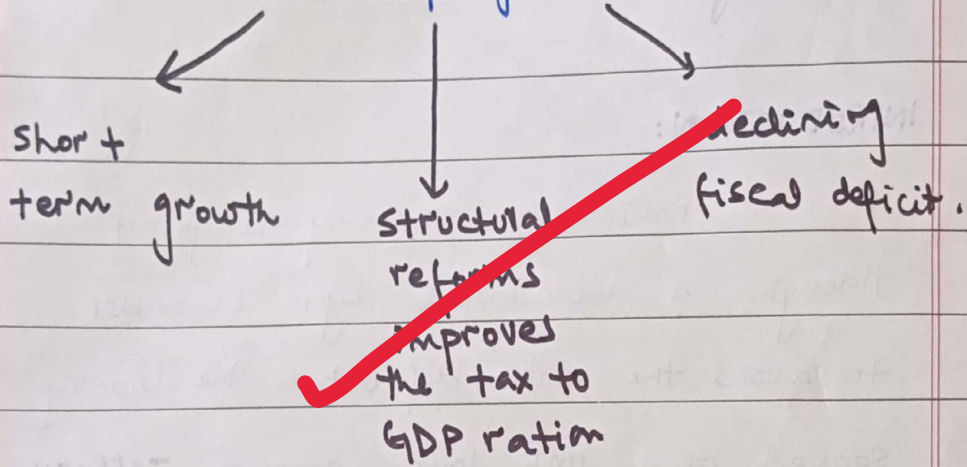 short
term growth
structural
reforms
improves
the tax to
GDP ration
declining
fiscal deficit.